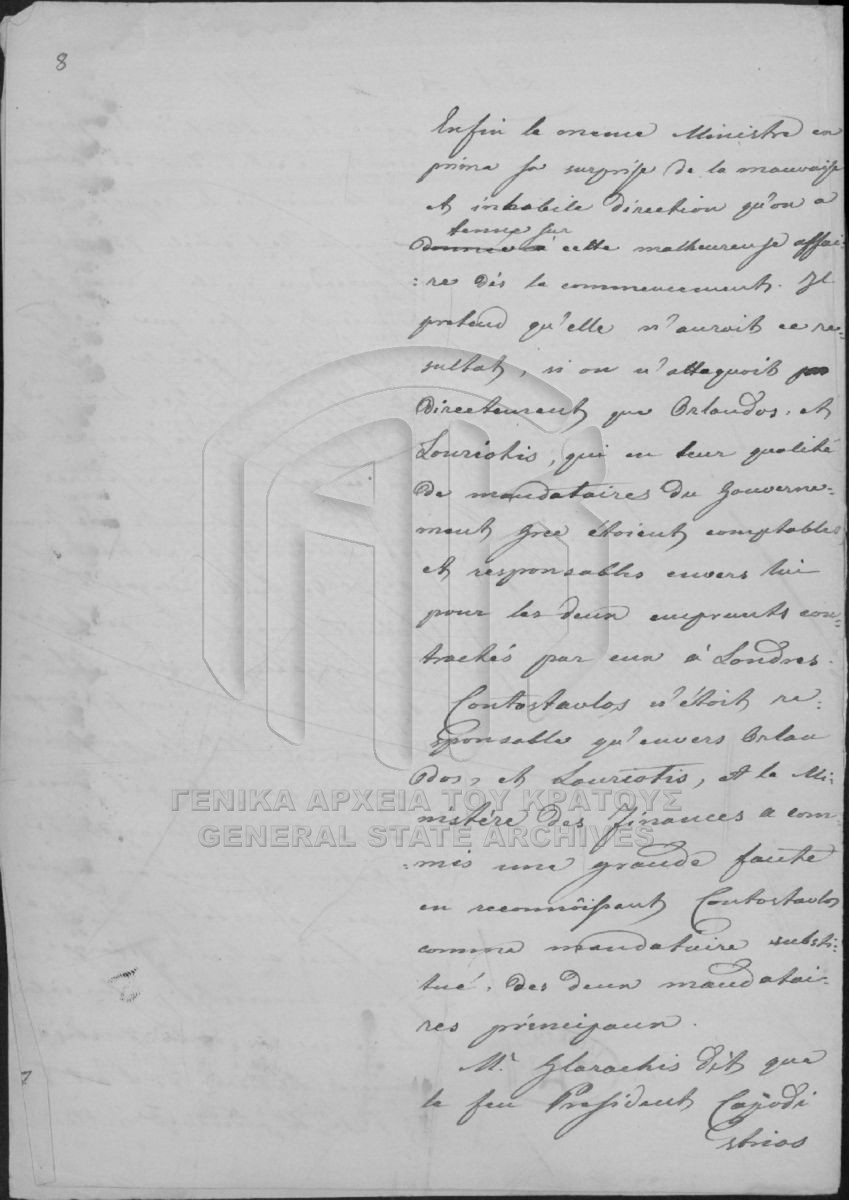 8
Enfin le meme Ministre ex
prima sa surprise de la mauvaise
et inhabile direction qu'on a
tenue sur
donnée à cette malheureuse affai-
:re dès le commencement. Il
pretend qu'elle n'auroit ce re-
sultat, si on n'attaquoit
directement que Orlandos, et
Louriotis, qui en leur qualité
de mandataires du Gouverne-
ment Grec étoient comptables
et responsables envers lui
pour les deux emprunts con-
tractés par eux à Londres.
Contostavlos n'étoit re-
sponsable qu'envers Orlan
dos, et Louriotis, et le Mi-
nistére des finances a com-
:mis une grande faute
en reconnoissant Contostavlos
comme mandataire substi-
tué, des deux mandatai-
res principaux.
Mr. Glarachis dit que
le feu President Capodi
strias
ΓΕΝΙΚΑ ΑΡΧΕΙΑ ΤΟΥ ΚΡΑΤΟΥΣ
GENERAL STATE ARCHIVES